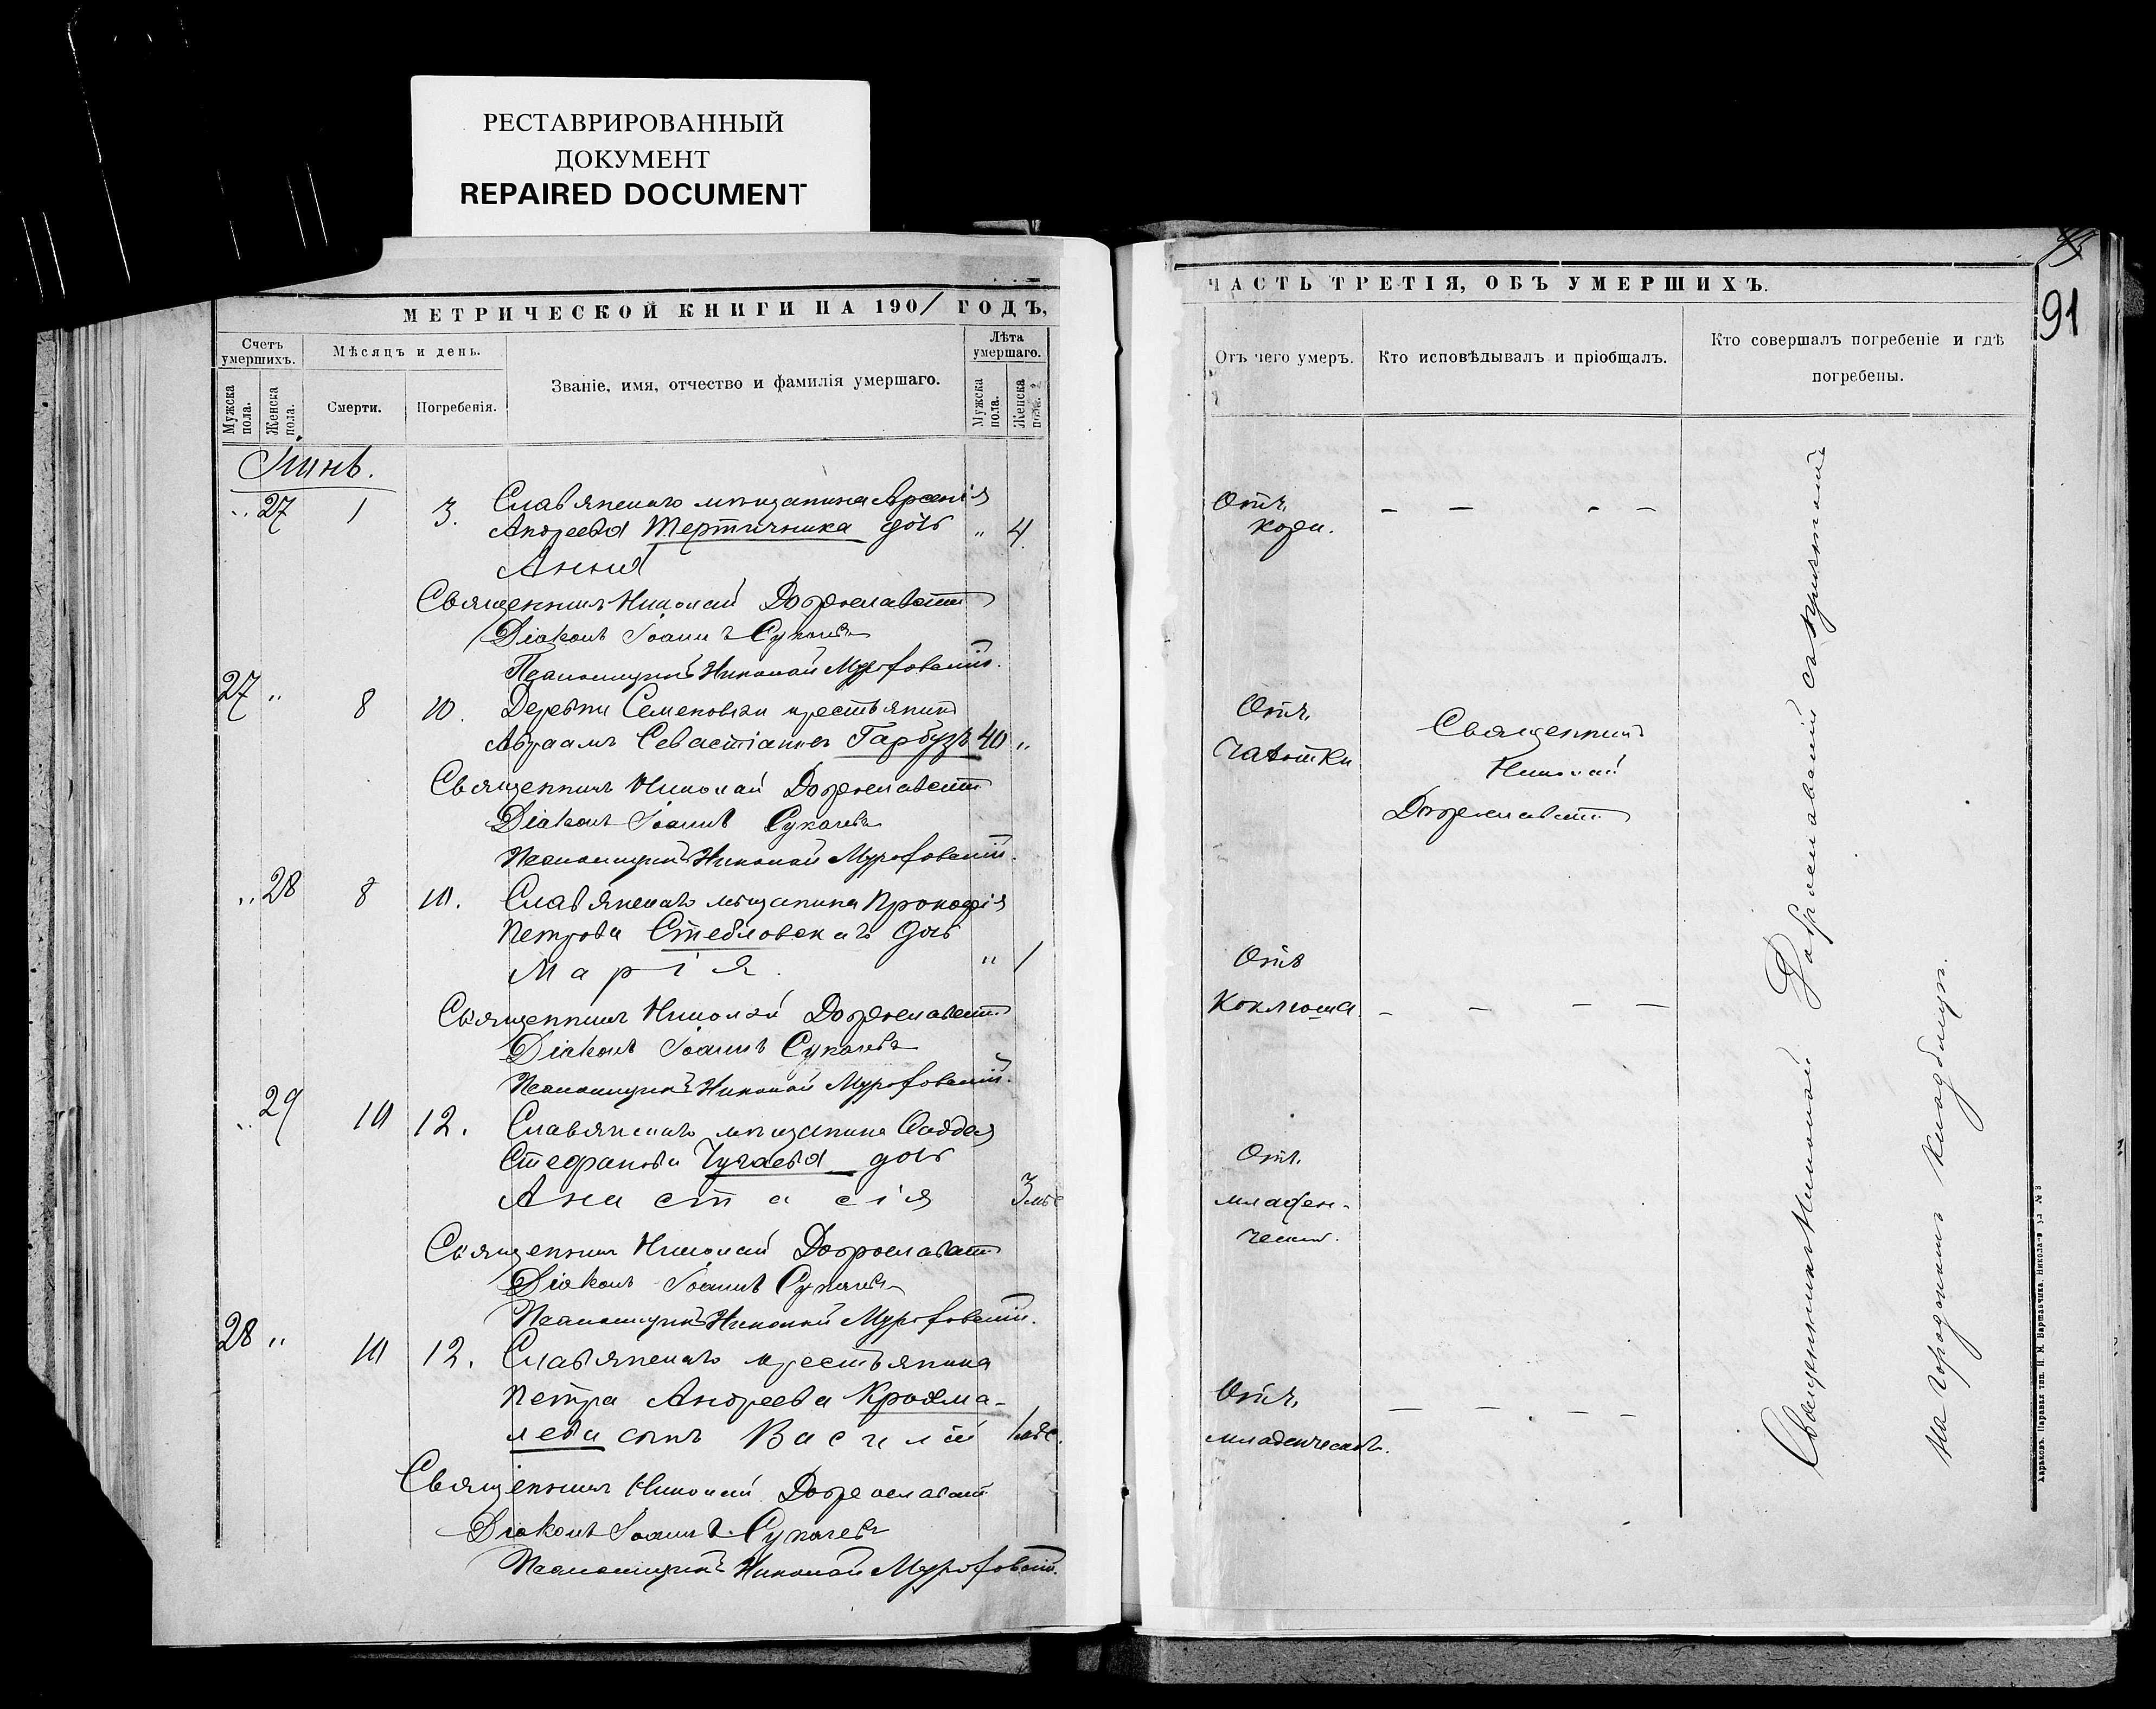 РЕСТАВРИРОВАННЫЙ
ДОКУМЕНТ
REPAIRED DOCUMENT
МЕТРИЧЕСКОЙ КНИГИ НА 1901 ГОДЪ,
Счетъ умершихъ.
Мѣсяцъ и день.
Званіе, имя, отчество и фамилія умершаго.
Лѣта умершаго.
Мужска пола.
Женска пола.
Смерти.
Погребенія.
Мужска пола.
Женска пола.
Іюнь.
„ 27 1 3. Славянскаго мѣщанина Арсенія
Андреева Тертичника дочь „ 4
Анна
Священникъ Николай Доброславскій
Діаконъ Іоаннъ Сукачевъ
Псаломщикъ Николай
27 „ 8 10. Деревни Семеновки крестьянинъ
Авраамъ Севастіановъ Гарбузъ 40 „
Священникъ Николай Доброславскій
Діаконъ Іоаннъ Сукачевъ
Псаломщикъ Николай
„ 28 8 10. Славянскаго мѣщанина Прокофія
Петрова Стебловскаго дочь
Марія. „ 1
Священникъ Николай Доброславскій
Діаконъ Іоаннъ Сукачевъ
Псаломщикъ Николай
„ 29 10 12. Славянскаго мѣщанина Фаддея
Стефанова Чугаева дочь
Анастасія 3 мѣс
Священникъ Николай Доброславскій
Діаконъ Іоаннъ Сукачевъ
Псаломщикъ Николай
28 „ 10 12. Славянскаго крестьянина
Петра Андреева Крохма-
лева сынъ Василій 1 мѣс.
Священникъ Николай Доброславскій
Діаконъ Іоаннъ Сукачевъ
Псаломщикъ Николай
ЧАСТЬ ТРЕТІЯ, ОБЪ УМЕРШИХЪ.
91
Отъ чего умеръ.
Кто исповѣдывалъ и пріобщалъ.
Кто совершалъ погребеніе и гдѣ погребены.
Отъ
кори. – – – –
Отъ
чахотки
Священникъ
Николай
Доброславскій
Отъ
коклюша – – – –
Отъ
младен-
ческой.
Отъ
младенческой. – – – –
Священникъ Николай Доброславскій съ причтомъ
на городскомъ кладбищѣ.
Харьковъ. Паровая тип. И. М. Варшавчика. Николаев ул № 3